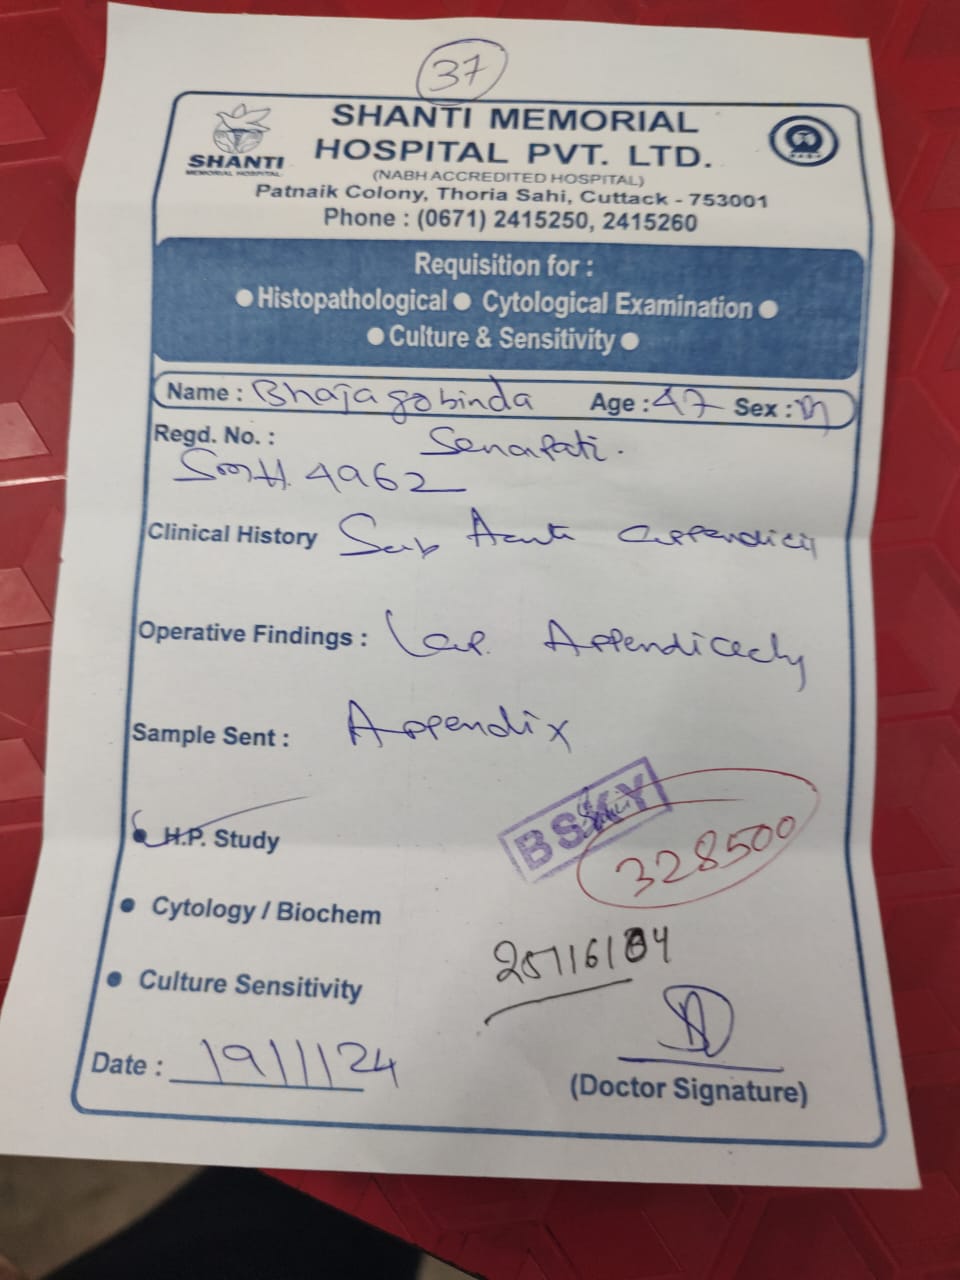 37
SHANTI MEMORIAL
HOSPITAL PVT. LTD.
SHANTI
MEMORIAL HOSPITAL
(NABH ACCREDITED HOSPITAL)
Patnaik Colony, Thoria Sahi, Cuttack - 753001
Phone : (0671) 2415250, 2415260
Requisition for :
● Histopathological ● Cytological Examination ●
● Culture & Sensitivity ●
Name : Bhajagobinda Age : 47 Sex : M
Regd. No. : Senapati.
SMH. 4962
Clinical History Sub Acute appendicit
Operative Findings : Lap. Appendicecly
Sample Sent : Appendix
● H.P. Study
BSKY
328500
● Cytology / Biochem
● Culture Sensitivity
Date : 19/11/24
(Doctor Signature)